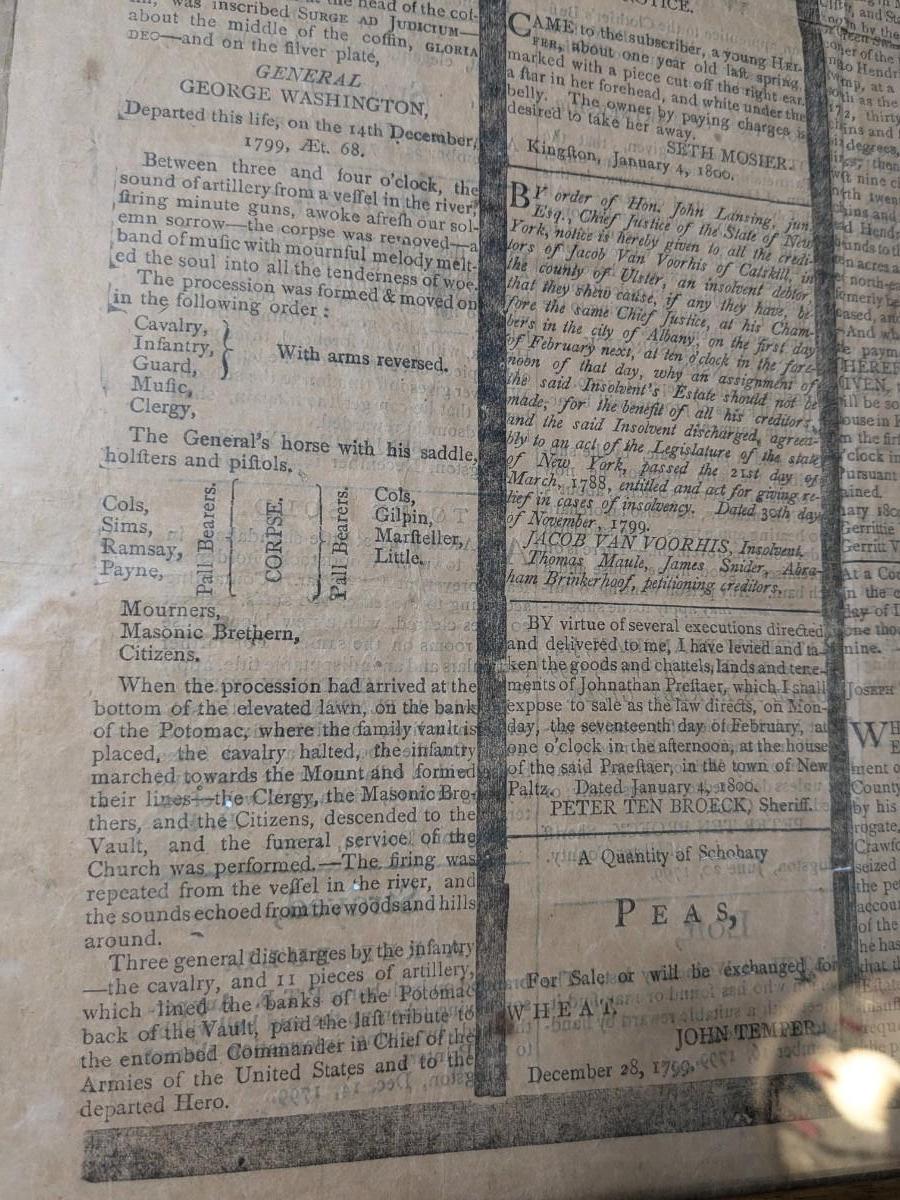 at the head of the cof-
was inscribed SURGE AD JUDICIUM—
about the middle of the coffin, GLORIA
DEO—and on the ſilver plate,
GENERAL
GEORGE WASHINGTON,
Departed this life, on the 14th December,
1799, Æt. 68.
Between three and four o'clock, the
sound of artillery from a veſſel in the river,
firing minute guns, awoke afreſh our sol-
emn sorrow—the corpse was removed—a
band of muſic with mournful melody melt-
ed the soul into all the tenderness of woe.
The procession was formed & moved on
in the following order :
Cavalry,
Infantry,
Guard,
With arms reversed.
Muſic,
Clergy,
The General's horse with his saddle,
holſters and piſtols.
Cols,
Sims,
Ramsay,
Payne,
Pall Bearers.
CORPSE.
Pall Bearers.
Cols,
Gilpin,
Marſteller,
Little.
Mourners,
Masonic Brethern,
Citizens.
When the procession had arrived at the
bottom of the elevated lawn, on the bank
of the Potomac, where the family vault is
placed, the cavalry halted, the infantry
marched towards the Mount and formed
their lines—the Clergy, the Masonic Bro-
thers, and the Citizens, descended to the
Vault, and the funeral service of the
Church was performed.—The firing was
repeated from the veſſel in the river, and
the sounds echoed from the woods and hills
around.
Three general discharges by the infantry
—the cavalry, and 11 pieces of artillery,
which lined the banks of the Potomac
back of the Vault, paid the laſt tribute to
the entombed Commander in Chief of the
Armies of the United States and to the
departed Hero.
NOTICE.
CAME to the subscriber, a young HEI-
FER, about one year old laſt spring,
marked with a piece cut off the right ear,
a ſtar in her forehead, and white under the
belly. The owner by paying charges is
desired to take her away.
SETH MOSIER.
Kingſton, January 4, 1800.
BY order of Hon. John Lansing, jun.
Esq., Chief Justice of the State of New
York, notice is hereby given to all the credi-
tors of Jacob Van Voorhis of Catskill, in
the county of Ulster, an insolvent debtor,
that they shew cause, if any they have, be-
fore the same Chief Justice, at his Cham-
bers in the city of Albany, on the first day
of February next, at ten o'clock in the fore-
noon of that day, why an assignment of
the said Insolvent's Estate should not be
made, for the benefit of all his creditors,
and the said Insolvent discharged, agreea-
bly to an act of the Legislature of the state
of New York, passed the 21st day of
March, 1788, entitled and act for giving re-
lief in cases of insolvency. Dated 30th day
of November, 1799.
JACOB VAN VOORHIS, Insolvent.
Thomas Maule, James Snider, Abra-
ham Brinkerhoof, petitioning creditors.
BY virtue of several executions directed
and delivered to me, I have levied and ta-
ken the goods and chattels, lands and tene-
ments of Johnathan Preſtaer, which I shall
expose to sale as the law directs, on Mon-
day, the seventeenth day of February, at
one o'clock in the afternoon, at the house
of the said Praeſtaer, in the town of New
Paltz. Dated January 4, 1800.
PETER TEN BROECK, Sheriff.
A Quantity of Schohary
PEAS,
For Sale or will be exchanged for
WHEAT.
JOHN TEMPER.
December 28, 1799.